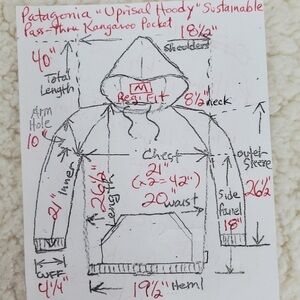 Patagonia "Uprisal Hoody" Sustainable
Pass-Thru Kangaroo Pocket
18½"
shoulders
40"
Total
Length
M
Reg. Fit
8½" neck
Arm
Hole
10"
Chest
21"
(x2=42")
20" waist
Inner
21"
26½"
Length
outer-
Sleeve
26½"
Side
Panel
18"
Cuff
4¼"
19½" Hem